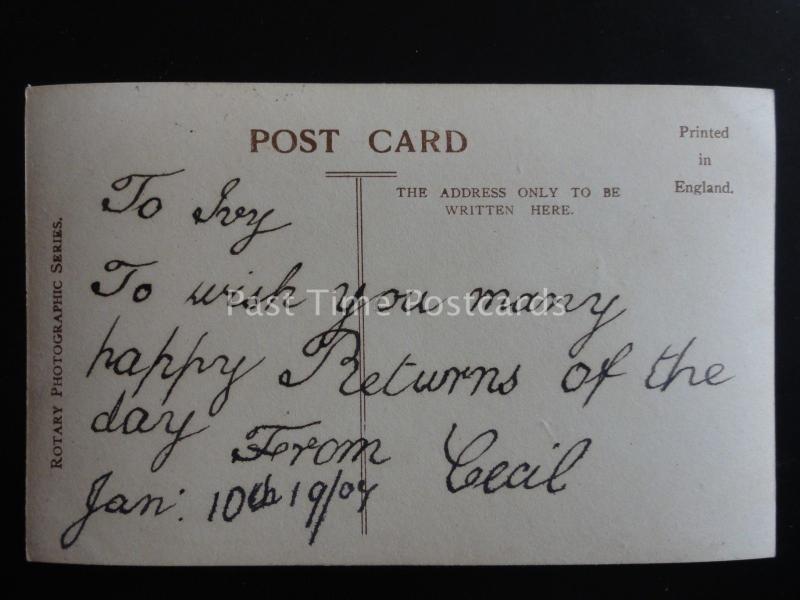 POST CARD
Printed
in
England.
THE ADDRESS ONLY TO BE
WRITTEN HERE.
ROTARY PHOTOGRAPHIC SERIES.
To Ivy
To wish you many
happy Returns of the
day
From Cecil
Jan: 10th 19/07
Past Time Postcards